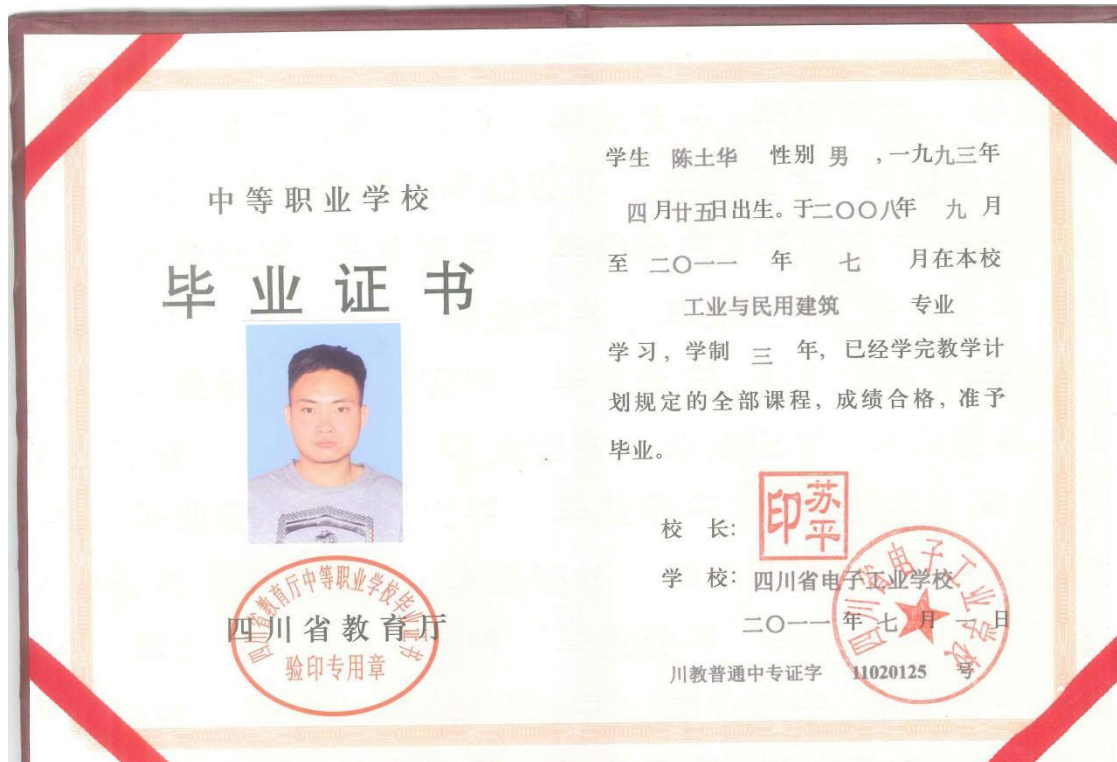 中等职业学校
毕业证书
四川省教育厅中等职业学校毕业证书
四川省教育厅
验印专用章
学生 陈土华 性别 男 ,一九九三年
四月廿五日出生。于二〇〇八年 九 月
至 二〇一一 年 七 月在本校
工业与民用建筑 专业
学习, 学制 三 年, 已经学完教学计
划规定的全部课程, 成绩合格, 准予
毕业。
苏平印
校 长:
学 校: 四川省电子工业学校
四川省电子工业学校
二〇一一 年 七 月 一 日
川教普通中专证字 11020125 号